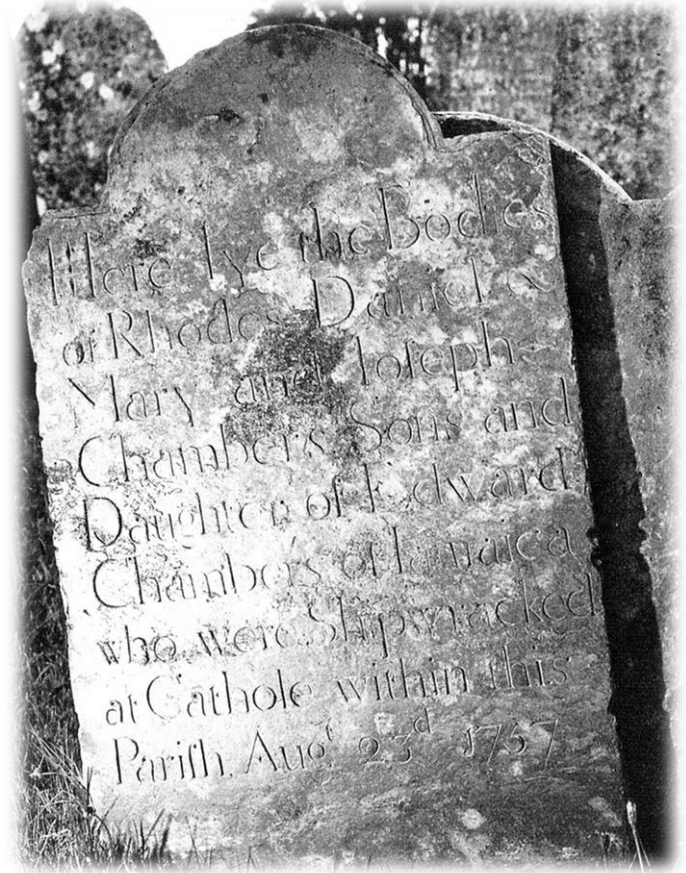 Here lye the Bodies
of Rhodes Daniel &
Mary and Ioſeph
Chambers Sons and
Daughter of Edward
Chambers of Iamaica
who were Shipwracked
at Cathole within this
Pariſh. Augᵗ 23ᵈ 1757